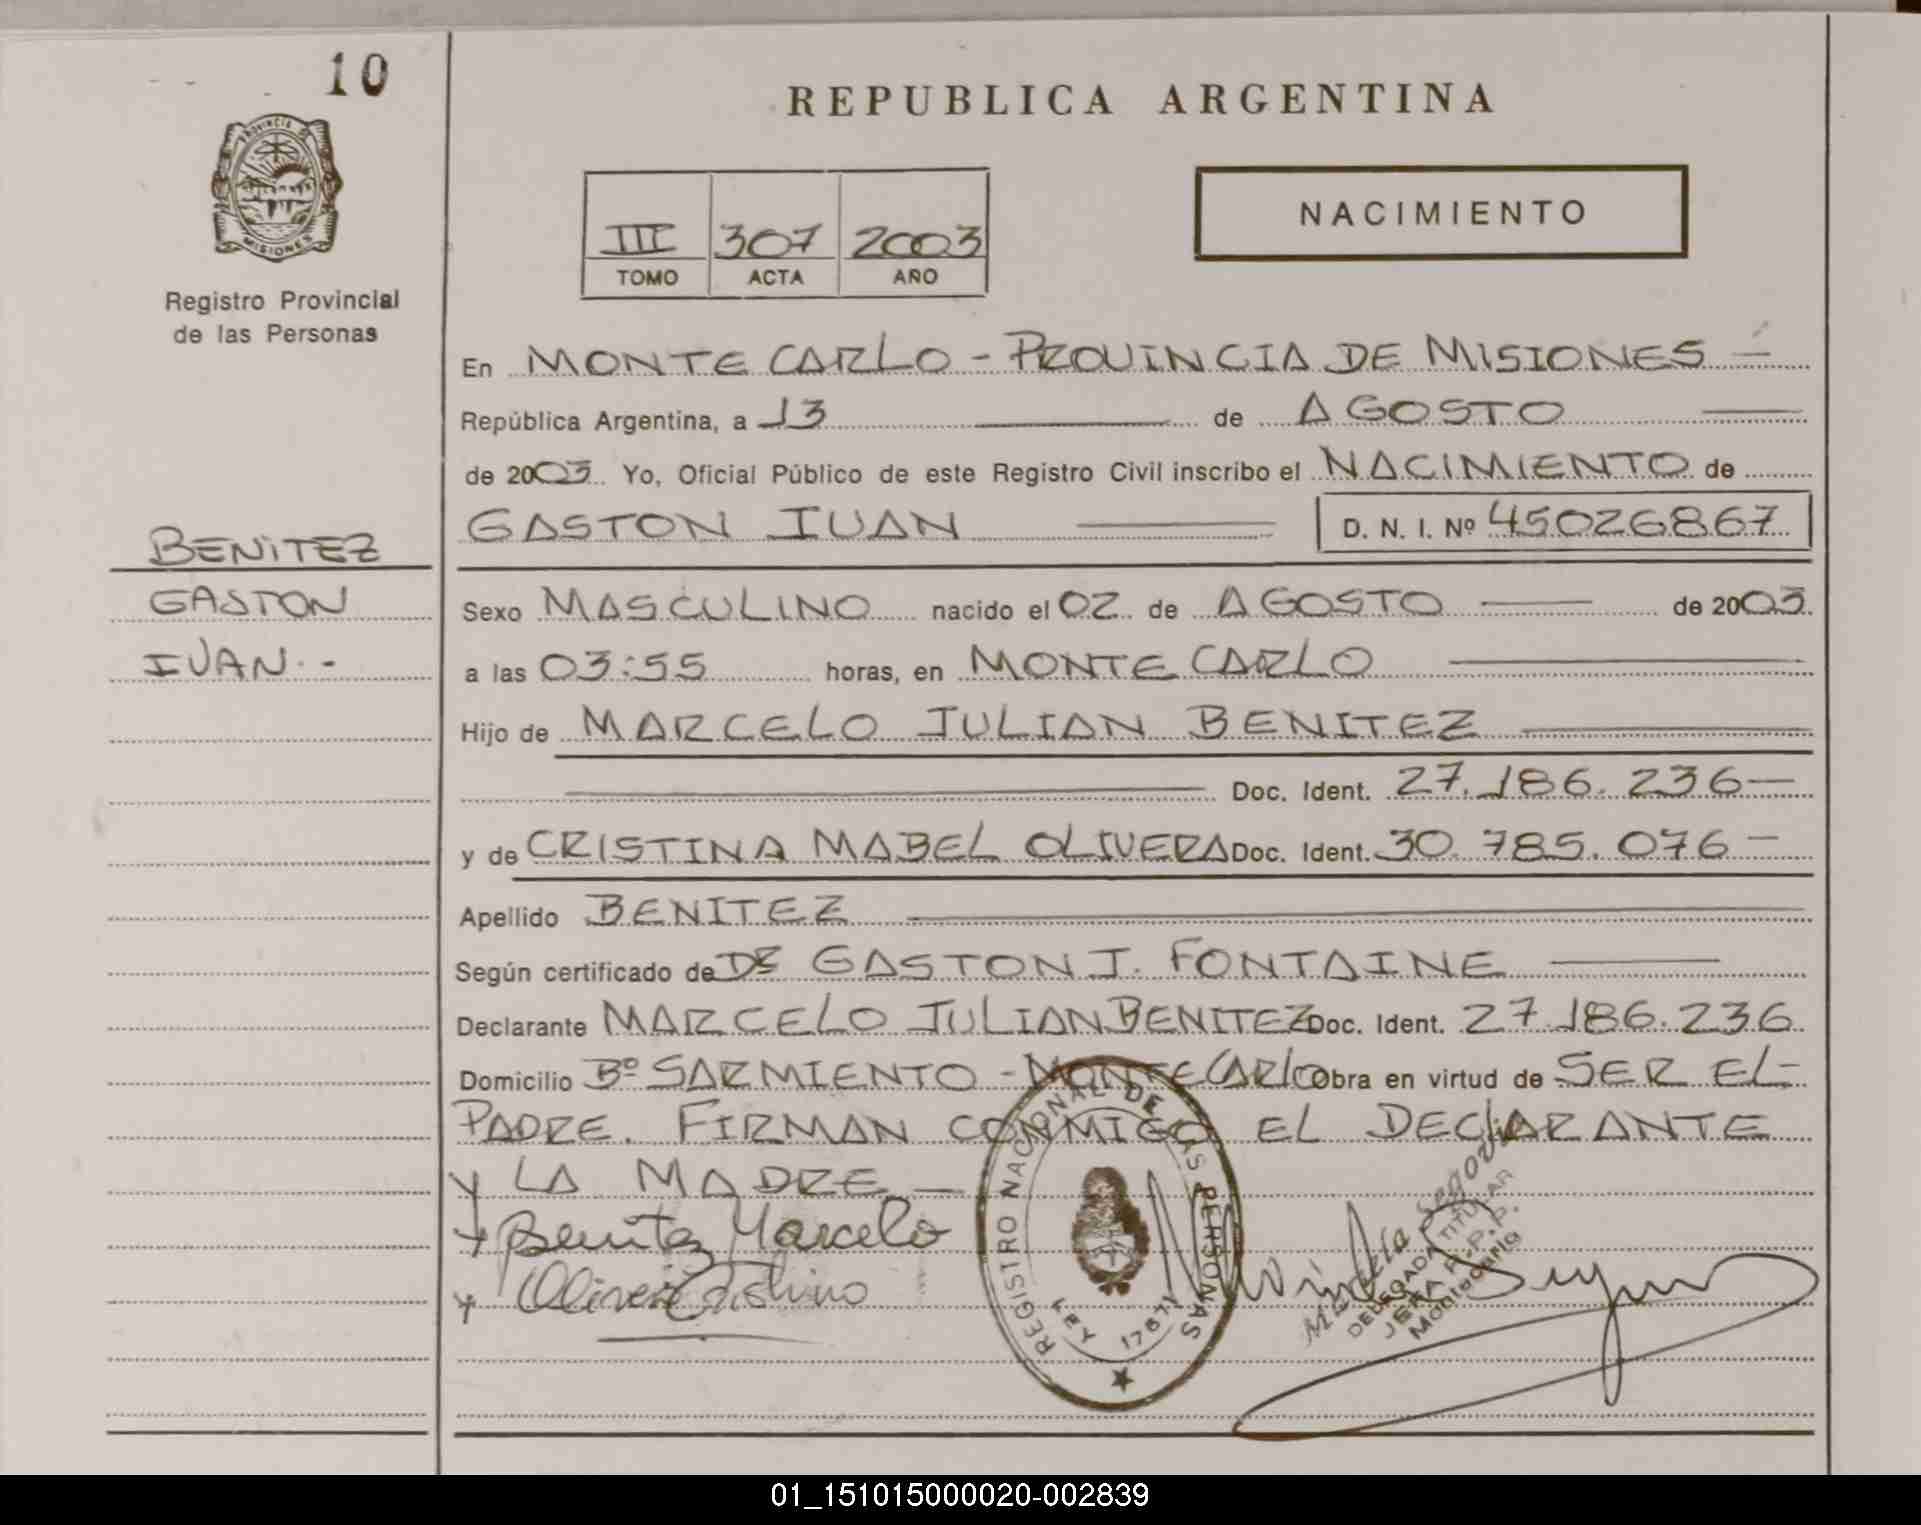 10
PROVINCIA DE
MISIONES
Registro Provincial
de las Personas
REPUBLICA ARGENTINA
III 307 2003
TOMO ACTA AÑO
NACIMIENTO
En MONTE CARLO - PROVINCIA DE MISIONES -
República Argentina, a 13 de AGOSTO
de 2003. Yo, Oficial Público de este Registro Civil inscribo el NACIMIENTO de
GASTON IVAN D. N. I. Nº 45026867
BENITEZ
GASTON
IVAN.-
Sexo MASCULINO nacido el 02 de AGOSTO de 2003.
a las 03:55 horas, en MONTE CARLO
Hijo de MARCELO JULIAN BENITEZ
Doc. Ident. 27.186.236-
y de CRISTINA MABEL OLIVERA Doc. Ident. 30.785.076-
Apellido BENITEZ
Según certificado de DE GASTON J. FONTAINE
Declarante MARCELO JULIAN BENITEZ Doc. Ident. 27.186.236
Domicilio Bº SARMIENTO - MONTE CARLO Obra en virtud de SER EL-
PADRE. FIRMAN CONMIGO EL DECLARANTE
Y LA MADRE -
Benitez Marcelo
Olivera Cristina
REGISTRO NACIONAL DE LAS PERSONAS
LEY 17671
Segovia
DELEGADA TITULAR
R.P.P.
Montecarlo
01_151015000020-002839